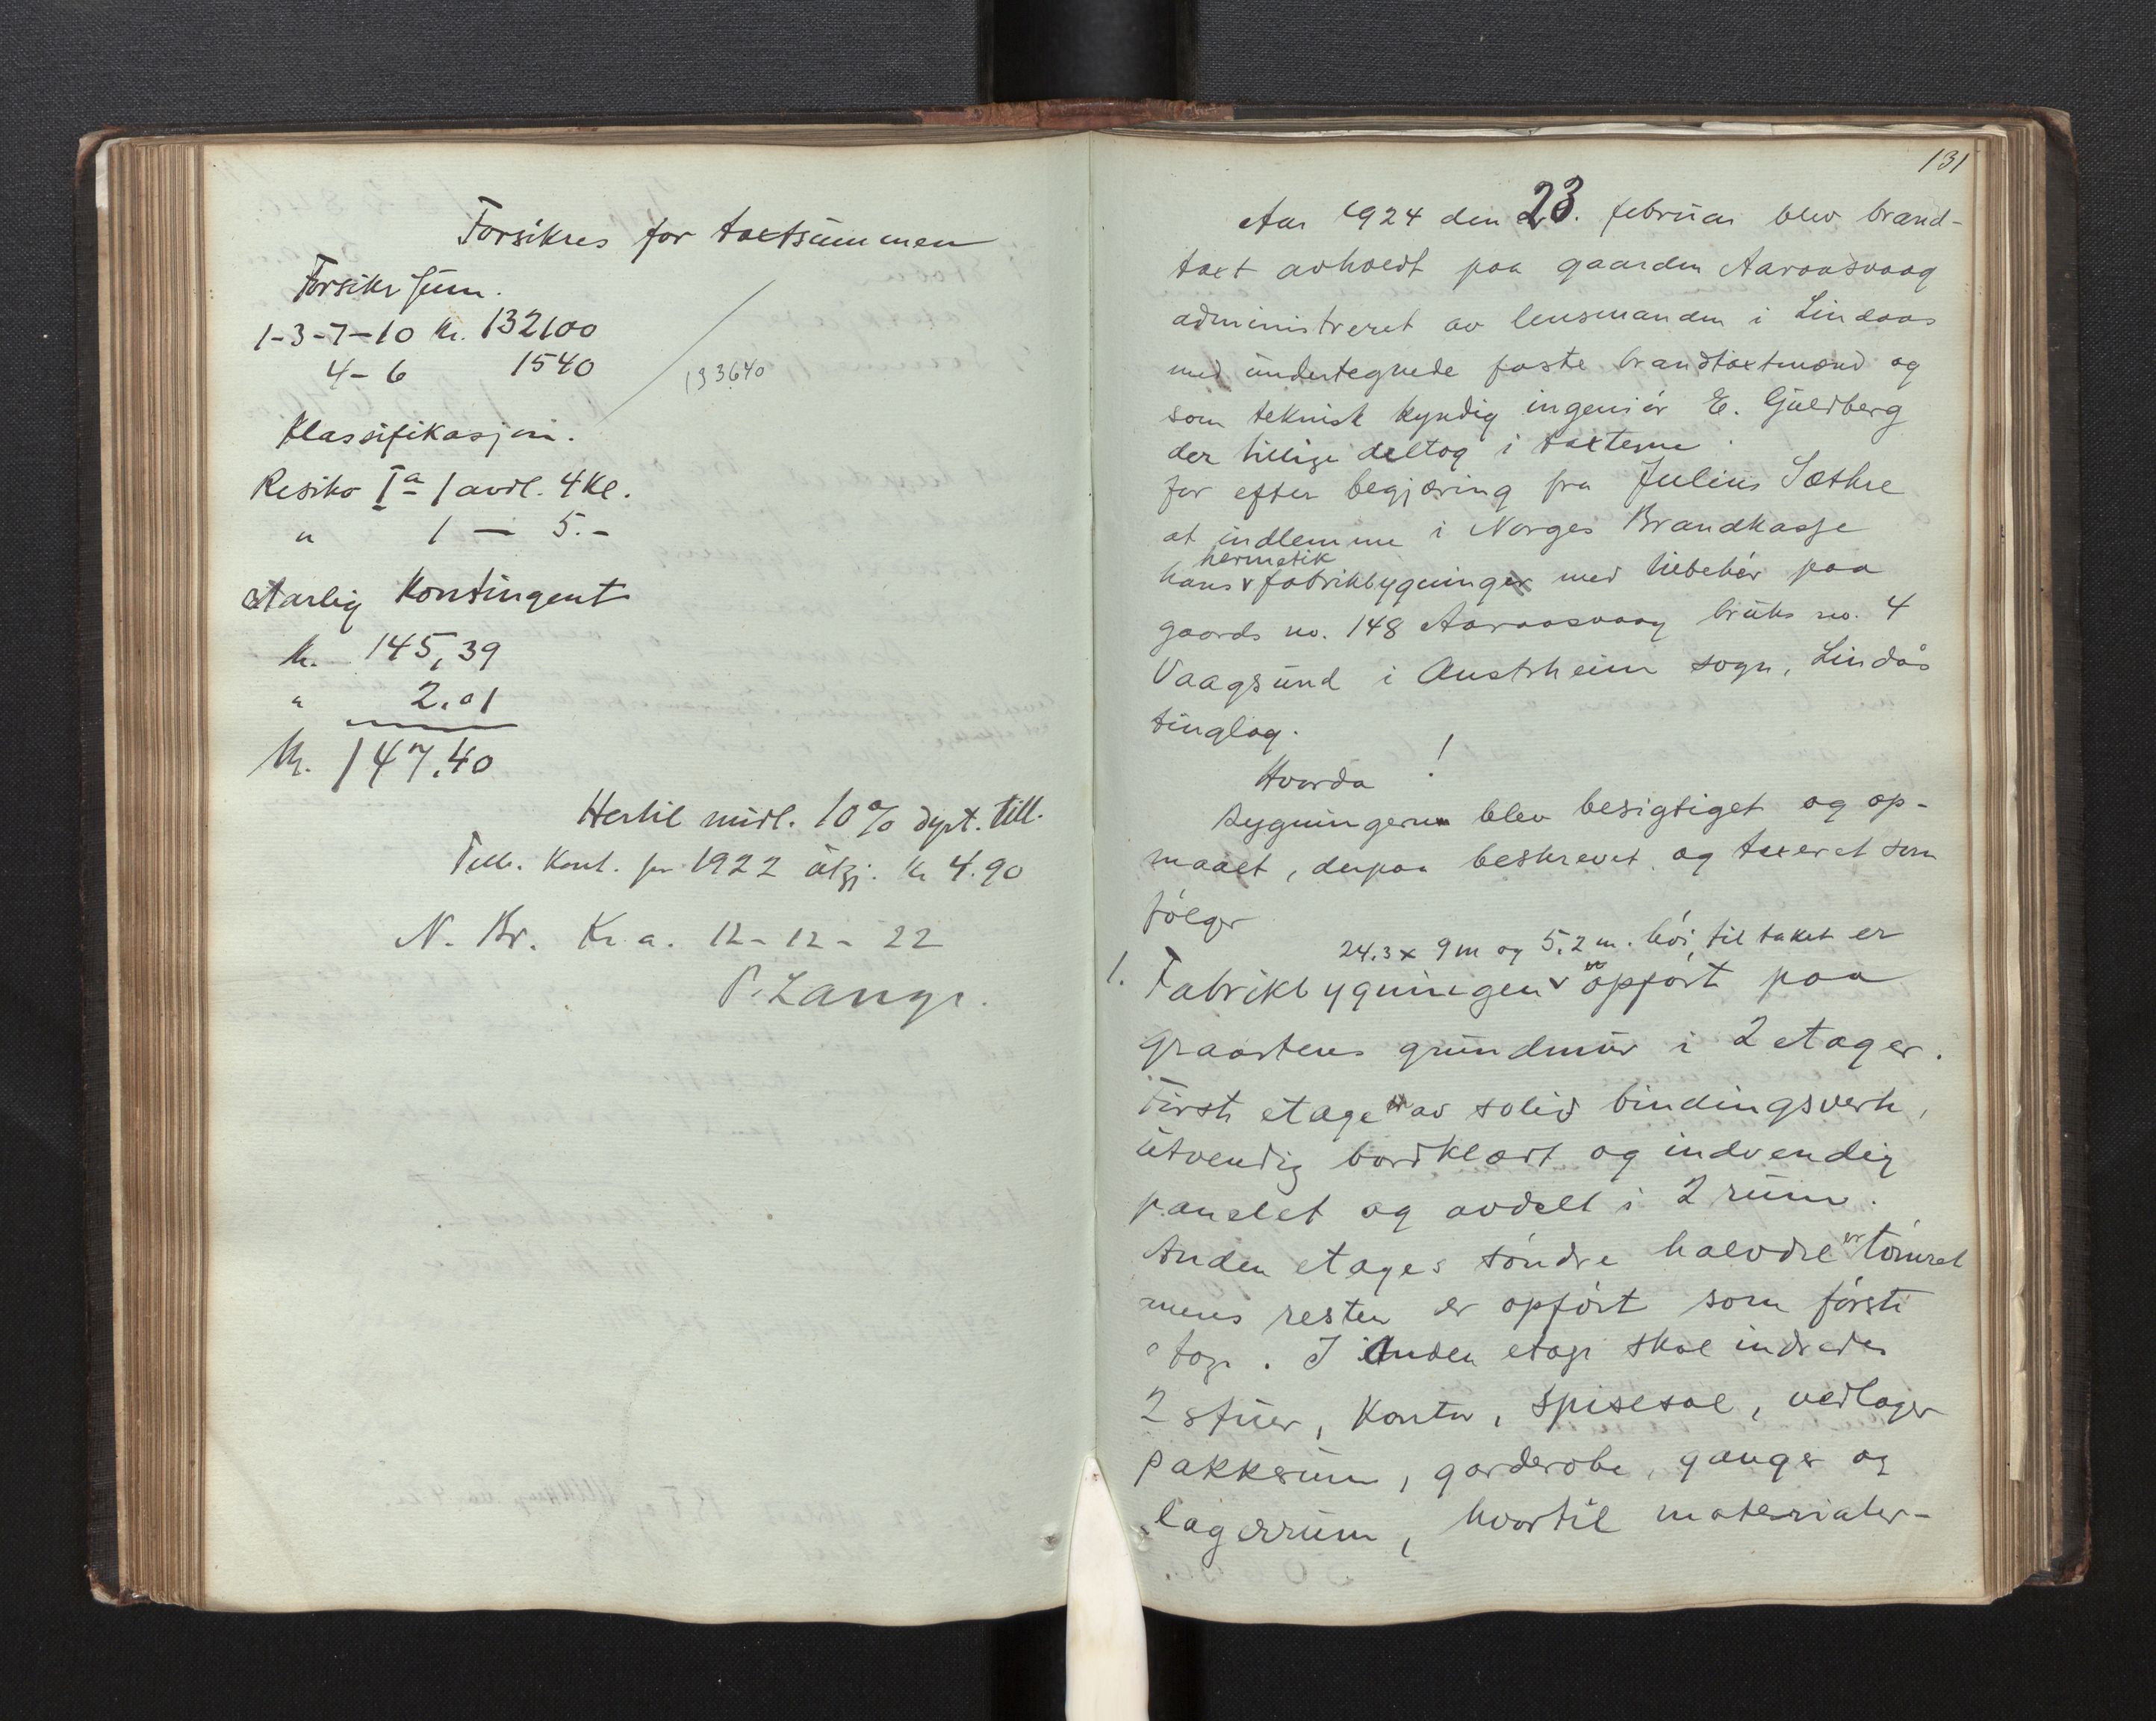 Forsikres for taxtsummen
Forsikr sum.
1-3-7-10 kr. 132100
4-6 1540
133640
Klassifikasjon.
Resiko Iª 1 avdl. 4 kl.
" 1 — 5.-
Aarlig Kontingent
kr. 145,39
" 2.01
kr. 147.40
Hertil midl. 10% dyrt. till.
Till. Kont. for 1922 utgj. kr 4.90
N. Br. Kr.a. 12-12-22
P. Lange.
131
Aar 1924 den 23. februar blev brand-
taxt avholdt paa gaarden Aaraasvaag
administreret av lensmanden i Lindaas
med undertegnede faste brandtaxtmænd og
som teknisk kyndig ingeniör E. Guldberg
der tillige deltog i taxterne
for efter begjæring fra Julius Sæthre
at indlemme i Norges Brandkasse
hermetik
hans fabrikbygninger med tilbehör paa
gaards no. 148 Aaraasvaag bruks no. 4
Vaagsund i Austrheim sogn, Lindås
tinglag.
Hvorda !
Bygningerne blev besigtiget og op-
maalt, derpaa beskrevet og taxeret som
fölger
24.3 x 9 m og 5.2 m. höi til taket er
1. Fabrikbygningen opfört paa
graastens grundmur i 2 etager.
Förste etage av solid bindingsverk,
utvendig bordklædt og indvendig
panelet og avdelt i 2 rum.
Anden etages söndre halvdel er tömret
mens resten er opfört som förste
etage. I Anden etage skal indredes
2 stuer, Kontor, spisesal, vedlager
pakkerum, garderobe, ganger og
lagerrum, hvortil materialer-